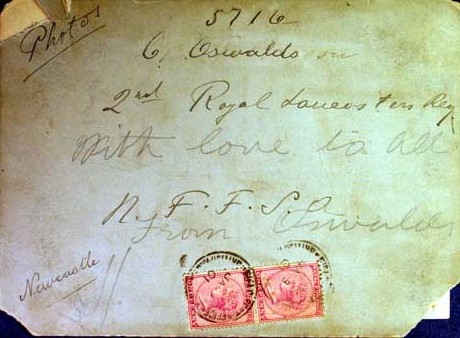 Photos
5716
C, Oswalds on
2nd Royal Lancasters Reg
With love to all
N. F. F. S. O
From Oswalds
Newcastle